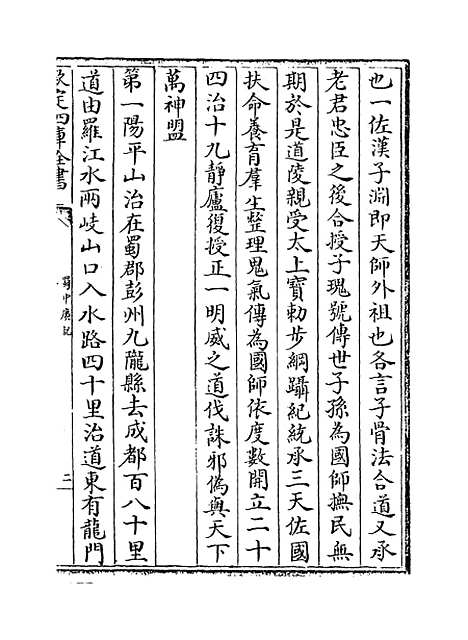 也一佐漢子淵即天師外祖也各言子骨法合道又承
老君忠臣之後合授子瑰號傳世子孫為國師撫民無
期於是道陵親受太上寶勅步綱躡紀統承三天佐國
扶命養育羣生整理鬼氣傳為國師依度數開立二十
四治十九靜廬復授正一明威之道伐誅邪偽與天下
萬神盟
第一陽平山治在蜀郡彭州九隴縣去成都百八十里
道由羅江水兩岐山口入水路四十里治道東有龍門
欽定四庫全書
蜀中廣記
三